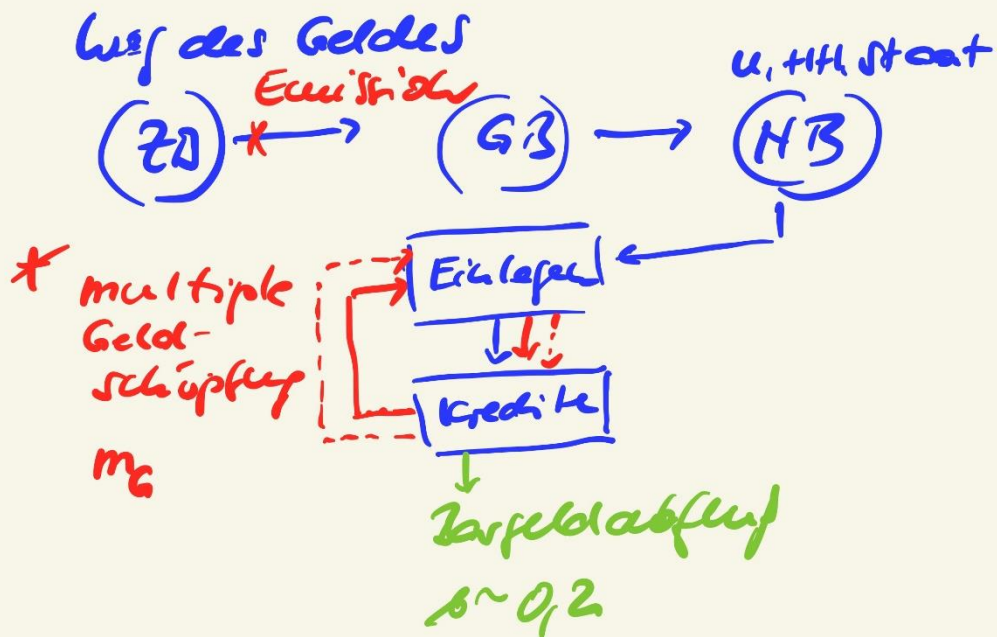 Weg des Geldes
Emission
U, HH, Staat
ZB
GB
NB
* multiple
Geld-
schöpfung
m_G
Einlagen
Kredite
Bargeldabfluß
b ~ 0,2